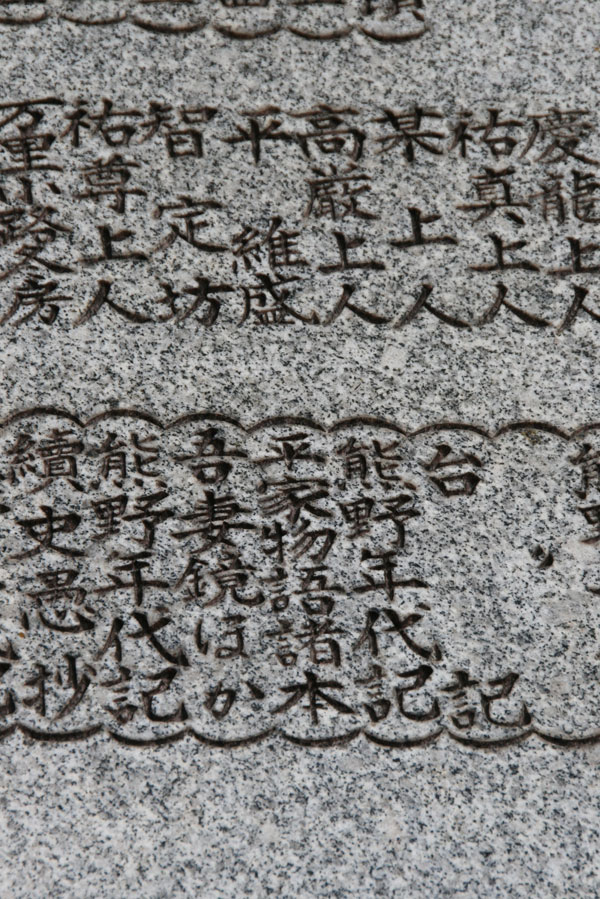 慶龍上人
祐真上人
某上人
高厳上人
平維盛
智定坊
祐尊上人
万里小路房
熊野
台記
熊野年代記
平家物語諸本
吾妻鏡ほか
熊野年代記
續史愚抄